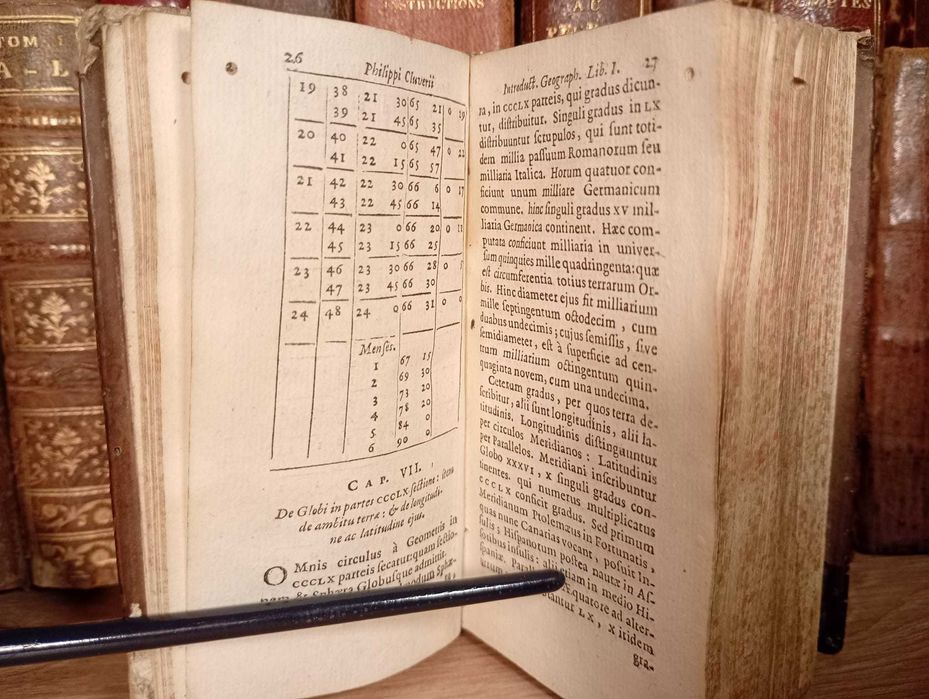 TOM
A-L
INSTRUCTIONS
AC
26
Philippi Cluverii
19 38 21 30 65 21 0 29
39 21 45 65 35
20 40 22 0 65 47 0 22
41 22 15 65 57
21 42 22 30 66 6 0 17
43 22 45 66 14
22 44 23 0 66 20 0 11
45 23 15 66 25
23 46 23 30 66 28 0 5
47 23 45 66 30
24 48 24 0 66 31 0 0
Menses.
1 67 15
2 69 30
3 73 20
4 78 20
5 84 0
6 90 0
CAP. VII.
De Globi in partes CCCLX sectione: item
de ambitu terræ; & de longitudi-
ne ac latitudine ejus.
OMnis circulus à Geometris in
CCCLX parteis secatur: quam sectio-
nem & Sphæra Globusque admittit.
Introduct. Geograph. Lib. I. 27
ra, in CCCLX parteis, qui gradus dicun-
tur, distribuitur. Singuli gradus in LX
distribuuntur scrupulos, qui sunt toti-
dem millia passuum Romanorum seu
milliaria Italica. Horum quatuor con-
ficiunt unum milliare Germanicum
commune. hinc singuli gradus XV mil-
liaria Germanica continent. Hæc com-
putata conficiunt milliaria in univer-
sum quinquies mille quadringenta: quæ
est circumferentia totius terrarum Or-
bis. Hinc diameter ejus fit milliarium
mille septingentum octodecim, cum
duabus undecimis; cujus semissis, sive
semidiameter, est à superficie ad cen-
trum milliarium octingentum quin-
quaginta novem, cum una undecima.
Ceterum gradus, per quos terra de-
scribitur, alii sunt longitudinis, alii la-
titudinis. Longitudinis distinguuntur
per circulos Meridianos: Latitudinis
per Parallelos. Meridiani inscribuntur
Globo XXXVI, X singuli gradus con-
tinentes. qui numerus multiplicatus
CCCLX conficit gradus. Sed primum
Meridianum Ptolemæus in Fortunatis,
quas nunc Canarias vocant, posuit In-
sulis; Hispanorum postea nautæ in As-
soribus insulis: alii etiam in medio Hi-
spaniæ. Æquatore ad alter-
LX, X itidem
gra-